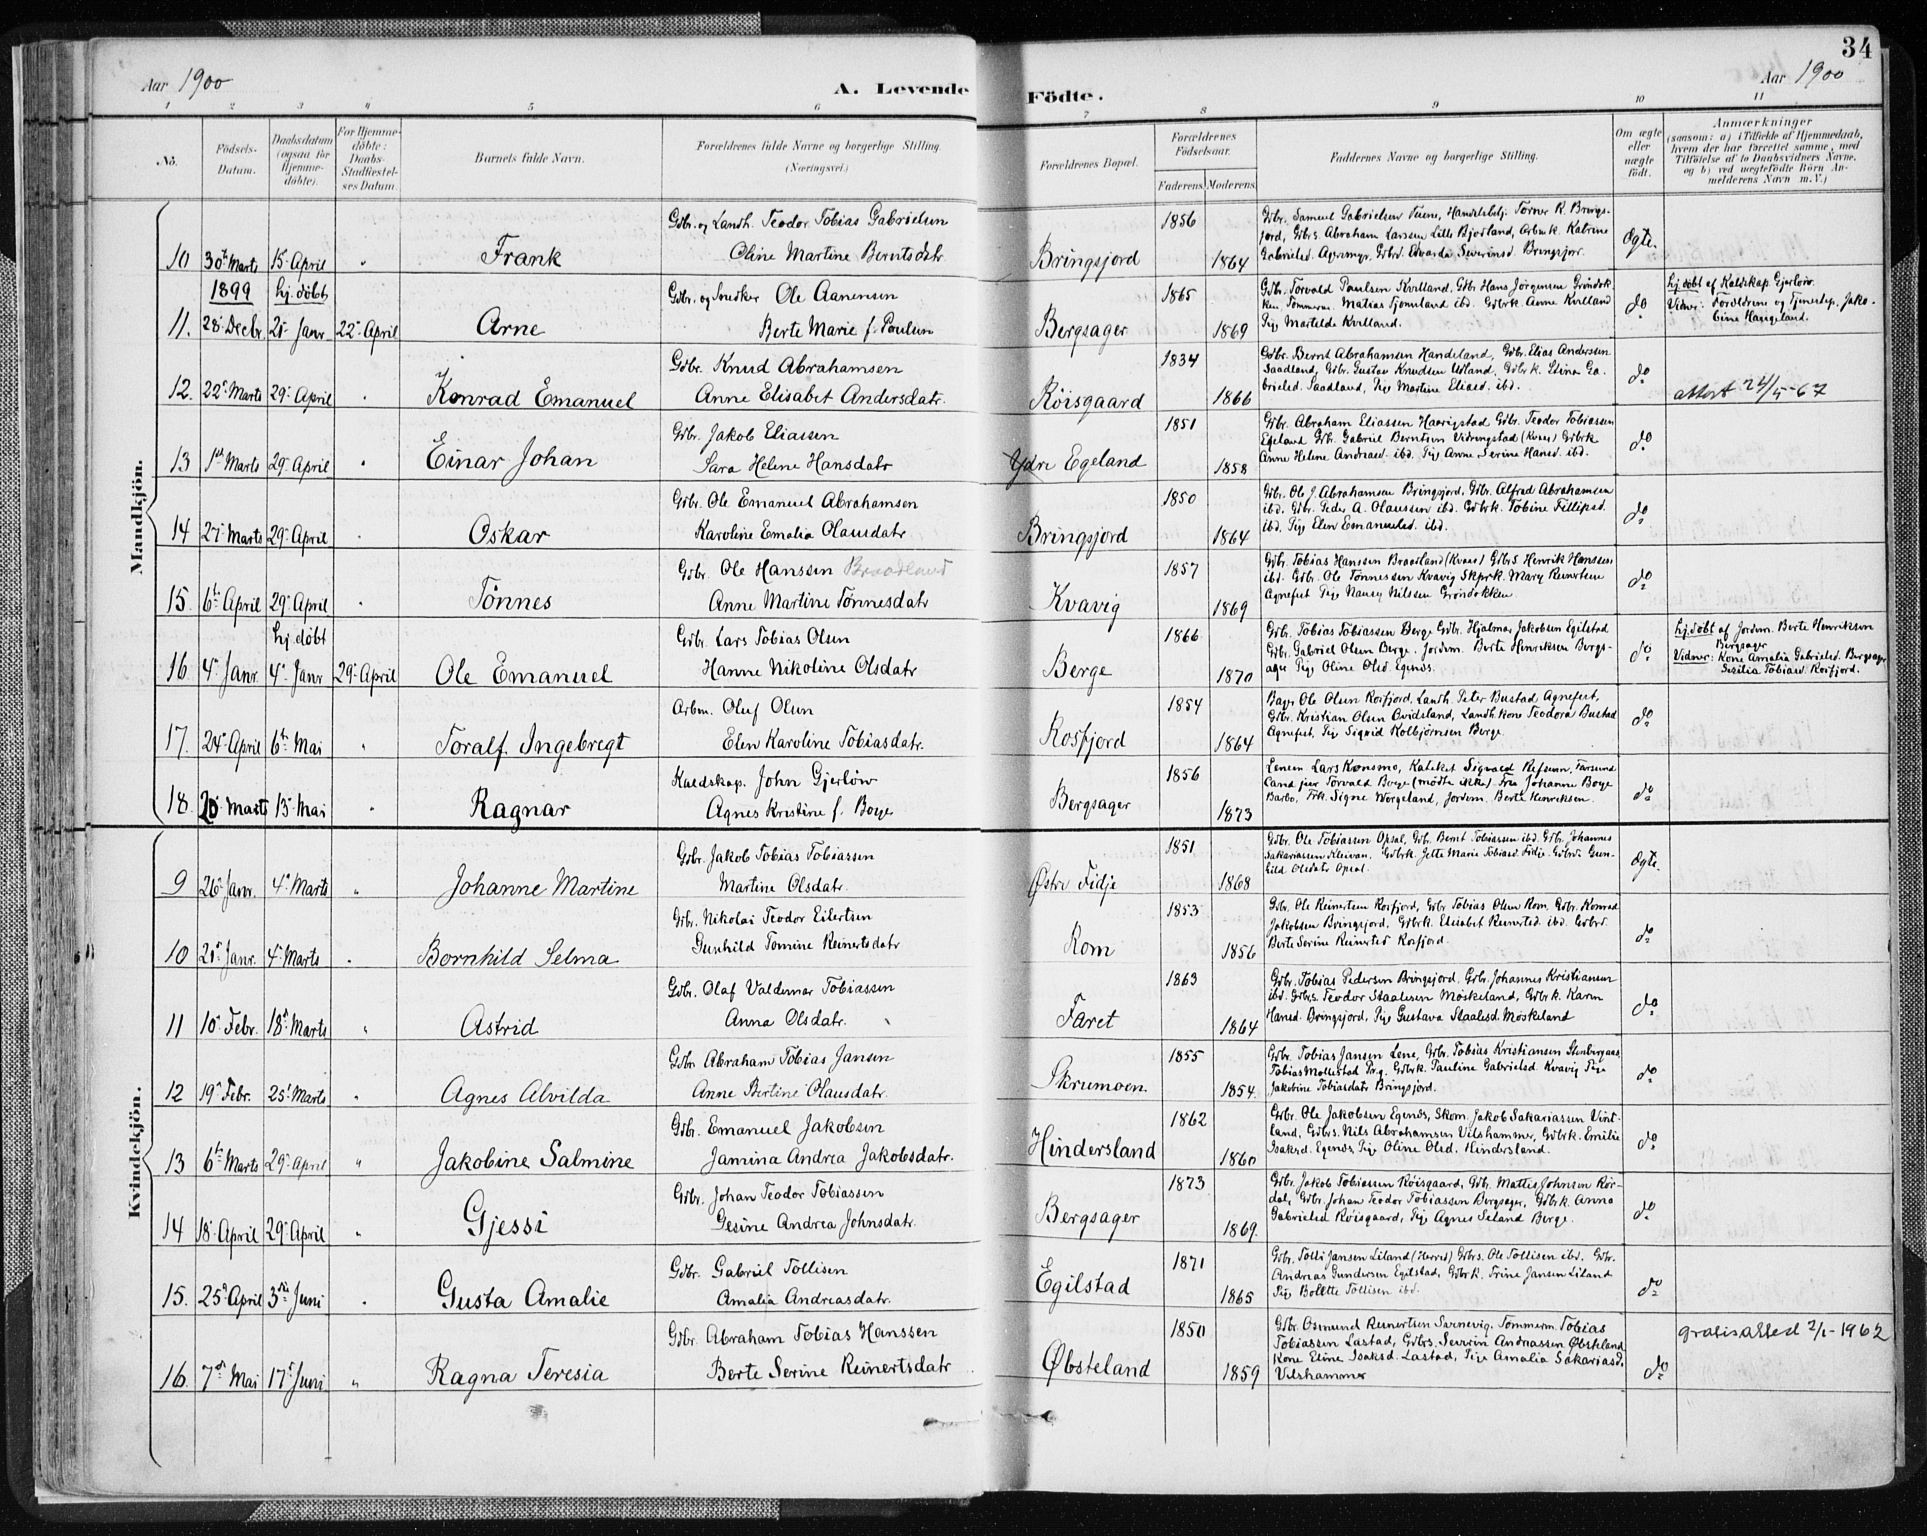 34
Aar 1900
A. Levende Födte.
Aar 1900
1 2 3 4 5 6 7 8 9 10 11
Nö.
Födsels-Datum.
Daabsdatum (ogsaa for Hjemmedöbte).
For Hjemmedöbte: Daabs-Stadfæstelses Datum.
Barnets fulde Navn.
Forældrenes fulde Navne og borgerlige Stilling. (Næringsvei.)
Forældrenes Bopæl.
Forældrenes Födselsaar.
Faderens. Moderens.
Faddernes Navne og borgerlige Stilling.
Om ægte eller uægte födt.
Anmærkninger
(saasom: a) i Tilfælde af Hjemmedaab, hvem der har forrettet samme, med Tilföielse af to Daabsvidners Navne, og b) ved uægtefödte Börn Anmelderens Navn m. V.)
Mandkjön.
Gdbr. og Landh. Teodor Tobias Gabrielsen
10 30te Marts 15. April " Frank Oline Martine Berntsdatr.
Bringsjord 1856 1864
Gdbr. Samuel Gabrielsen, Handelsbetj. Torner R. Brings-
jord, Gdbrs. Abraham Larssen Lille Bjorland, Arbmk. Katrine
Ægte.
1899 hj. döbt
Gdbr. og Snedker Ole Aanensen
11. 28. Decbr. 21. Janr. 22. April Arne Berte Marie f. Paulsen
Bergsager 1865 1869
Gdbr. Torvald Paulsen Kvilland, Gdbr. Hans Jörgensen Gröndok-
ken, Tömmerm. Matias Tjomsland ibd. Gdbrk. Anne Kvilland
Pige Martilde Kvilland.
do
hj. döbt af Kaldskap. Gjerlöw.
Vidner: Forældrene og Tjenestep. Jako-
bine Haugeland.
Gdbr. Knud Abrahamsen
12. 22. Marts 29. April " Konrad Emanuel Anne Elisabet Andersdatr.
Röisgaard 1834 1866
Gdbr. Bernt Abrahamsen Handeland, Gdbr. Elias Anderssen
Saadland, Gdbr. Gustav Knudsen Udland, Gdbrk. Stina Ga-
brielsd. Saadland, Pige Martine Eliasd. ibd.
do
attest 24/5-67
Gdbr. Jakob Eliassen
13 1ste Marts 29. April " Einar Johan Sara Helene Hansdatr
Ydre Egeland 1851 1858
Gdbr. Abraham Eliassen Haarigstad Gdbr. Teodor Tobiassen
Egeland Gdbr. Gabriel Berntsen Vidringstad (Kvaas) Gdbrk
Anne Helene Andreasd. ibd. Pige Anne Serine Hansd. ibd.
do
Gdbr. Ole Emanuel Abrahamsen
14 27. Marts 29. April " Oskar Karoline Emalia Olausdatr
Bringsjord 1850 1864
Gdbr. Ole J. Abrahamsen Bringsjord, Gdbr. Alfred Abrahamsen
ibd. Gdbr. Peder A. Olaussen ibd. Gdbrk. Tobine Fillipsd.
ibd. Pige Elen Emanuelsd. ibd.
do
Gdbr. Ole Hanssen Braadland
15. 6te April 29. April " Tönnes Anne Martine Tönnesdatr
Kvavig 1857 1869
Gdbr. Tobias Hanssen Braadland (Kvaas) Gdbrs. Henrik Hanssen
ibd. Gdbr. Ole Tönnessen Kvavig Skprk. Mary Reinertsen
Agnefest Pige Nansy Nilssen Gröndokken
do
hj. döbt
Gdbr. Lars Tobias Olsen
16 4. Janr. 4. Janr 29. April Ole Emanuel Hanne Nikoline Olsdatr
Berge 1866 1870
Gdbr. Tobias Tobiassen Berge Gdbr. Hjalmar Jakobsen Egilstad
Gdbr. Gabriel Olsen Berge. Jordem. Berte Henriksen Bergs-
ager Pige Oline Olsd. Egenes.
do
hj. döbt af Jordem. Berte Henriksen
Bergsager
Vidner: Kone Amalia Gabrielsd. Bergsager
Serilia Tobiasd. Rosfjord.
Arbm. Oluf Olsen
17. 24. April 6te Mai " Toralf Ingebregt Elen Karoline Tobiasdatr.
Rosfjord 1854 1864
Ole Olsen Rosfjord, Landh. Peter Bustad Agnefest,
Gdbr. Kristian Olsen Qvidsland, Landh. kone Teodora Bustad
Agnefest. Pige Sigrid Kolbjörnsen Berge.
do
Kaldskap. John Gjerlöw
18. 20. Marts 13. Mai " Ragnar Agnes Kristine f. Boye
Bergsager 1856 1873
Lensm. Lars Kонsmo, Kateket Sigvald Refsum, Farsund
Torvald Borge (mödte ikke). Fru Johanne Boye
Barbo, Frk. Signe Wergeland, Jordem. Berte Henriksen.
do
Kvindekjön.
Gdbr. Jakob Tobias Tobiassen
9 26. Janr. 4. Marts " Johanne Martine Martine Olsdatr.
Östre Fidje 1851 1868
Gdbr. Ole Tobiassen Opsal, Gdbr. Bernt Tobiassen ibd. Gdbr. Johannes
Sakariassen Kleivan. Gdbrk. Jette Marie Tobiasd. Fidje. Gdbrd. Gun-
hild Olsdatr Opsal.
Ægte.
Gdbr. Nikolai Teodor Eilertsen
10 21. Janr. 4. Marts " Bornhild Selma Gunhild Tomine Reinertsdatr
Rom 1853 1856
Gdbr. Ole Reinertsen Rosfjord, Gdbr Tobias Olsen Rom. Gdbr. Konrad
Jakobsen Bringsjord, Gdbrk. Elisabet Reinertsd. ibd. Gdbrd.
Berte Serine Reinertsd Rosfjord.
do
Gdbr. Olaf Valdemar Tobiassen
11 10. Febr. 18. Marts " Astrid Anna Olsdatr.
Faret 1863 1864
Gdbr. Tobias Pedersen Bringsjord. Gdbr. Johannes Kristiansen
ibd. Gdbrs. Teodor Staalesen Möskeland, Gdbrk. Karen
Hansd. Bringsjord, Pige Gustava Staalesd. Möskeland
do
Gdbr. Abraham Tobias Jansen
12 19. Febr. 25. Marts " Agnes Alvilda Anne Bertine Olausdatr.
Skrumoen 1855 1854.
Gdbr. Tobias Jansen Lene, Gdbr. Tobias Kristiansen Stenbergaas,
Tobias Mollestad Prg. Gdbrk. Pauline Gabrielsd. Kvavig Pige
Jakobine Tobiasdatr Bringsjord.
do
Gdbr. Emanuel Jakobsen
13 6te Marts 29. April " Jakobine Salmine Jamina Andrea Jakobsdatr.
Hindersland 1862 1860
Gdbr. Ole Jakobsen Egenes, Skom. Jakob Sakariassen Vint-
land, Gdbrs. Nils Abrahamsen Vilshammer, Gdbrk. Emilie
Isaksd. Egenes Pige Oline Olsd. Hindersland.
do
Gdbr. Johan Teodor Tobiassen
14 18. April 29. April " Gjessi Gesine Andrea Johnsdatr.
Bergsager 1873 1869.
Gdbr. Jakob Tobiassen Röisgaard, Gdbr. Mattis Johnsen Rör-
dal, Gdbr. Johan Teodor Tobiassen Bergsager, Gdbrk. Anna
Gabrielsd Röisgaard, Pige Agnes Seland Berge.
do
Gdbr. Gabriel Tollisen
15. 25de April 3die Juni " Gusta Amalie Amalia Andreasdatr.
Egilstad 1871 1865
Gdbr. Tolli Jansen Liland (Herred) Gdbrs. Ole Tollisen ibd. Gdbr.
Andreas Gundersen Egilstad, Gdbrk. Trine Jansen Liland
Pige Bolette Tollisen ibd.
do
Gdbr. Abraham Tobias Hanssen
16. 7de Mai 17. Juni " Ragna Teresia Berte Serine Reinertsdatr
Öbsteland 1850 1859
Gdbr. Osmund Reinertsen Sarnevig, Tömmerm. Tobias
Tobiassen Lastad, Gdbrs. Severin Andreassen Öbsteland
Kone Eline Isaksd. Lastad, Pige Amalia Sakariasd.
Vilshammer
do
gratisattest 2/1-1962